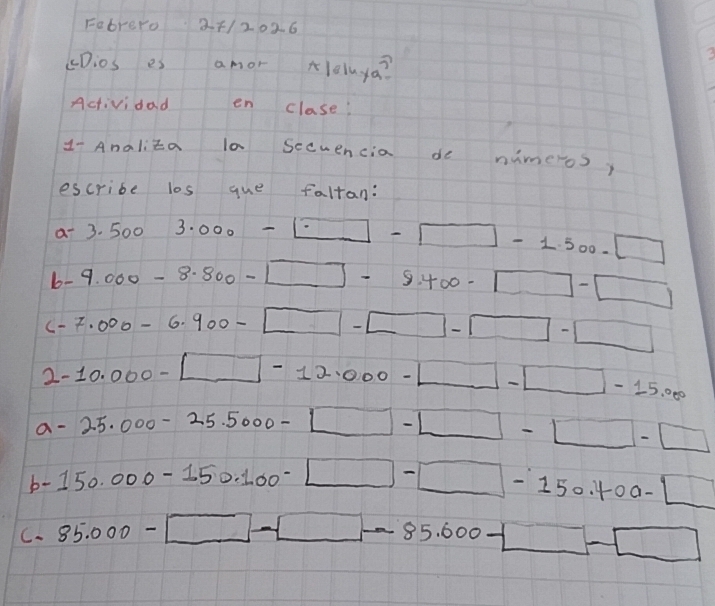 Febrero 27/2026
¿Dios es amor Aleluya?
Actividad en clase:
1- Analiza la Secuencia de números,
escribe los que faltan:
a- 3.500 3.000 - - - 1.500 -
b- 9.000 - 8.800 - - 8.400 - -
c- 7.000 - 6.900 - - - -
2- 10.000 - - 12.000 - - - 15.000
a- 25.000 - 25.5000 - - - -
b- 150.000 - 150.100 - - - 150.400 -
c- 85.000 - - - 85.600 - -
3